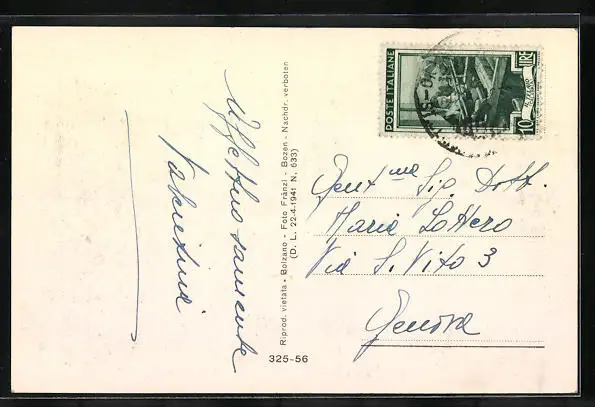 Affettuosamente
Riprod. vietata - Bolzano - Foto Fränzl - Bozen - Nachdr. verboten
(D. L. 22-4-1941 N. 633)
325-56
POSTE ITALIANE
LIRE
10
Gent.ma Sig. Dott.
Maria Lottero
Via S. Vito 3
Genova